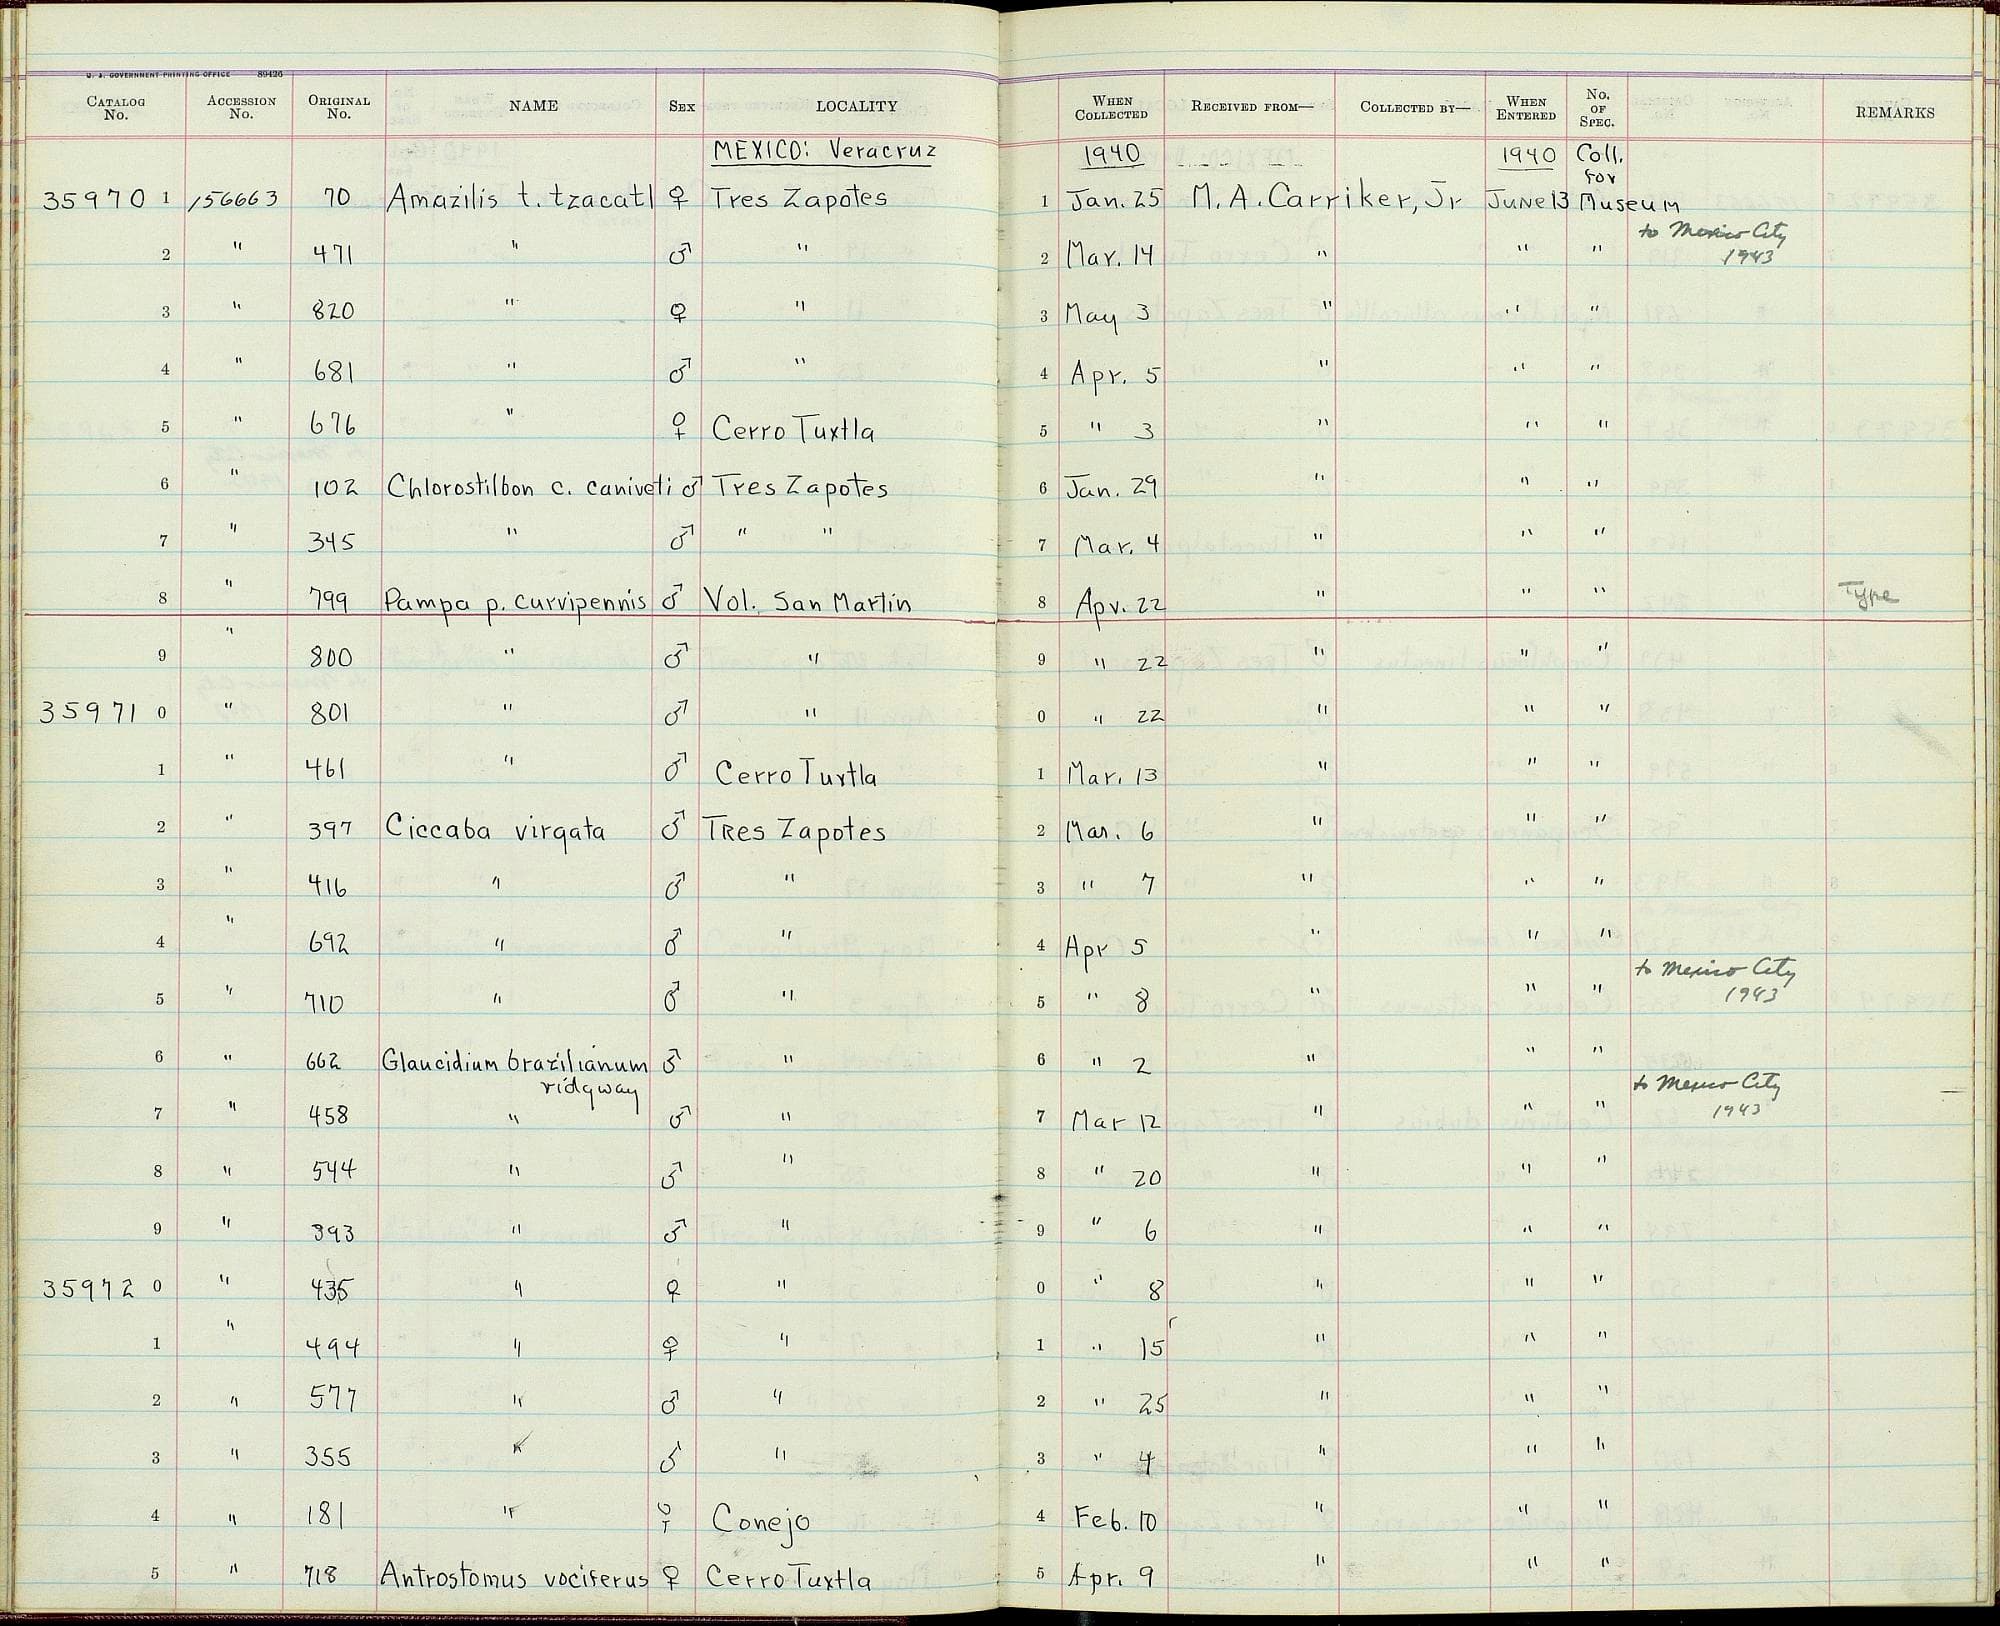 U. S. GOVERNMENT PRINTING OFFICE 89426
CATALOG No. ACCESSION No. ORIGINAL No. NAME SEX LOCALITY WHEN COLLECTED RECEIVED FROM— COLLECTED BY— WHEN ENTERED No. OF SPEC. REMARKS
MEXICO: Veracruz 1940 1940 Coll. for
35970 1 156663 70 Amazilis t. tzacatl ♀ Tres Zapotes 1 Jan. 25 M. A. Carriker, Jr June 13 Museum
2 " 471 " ♂ " 2 Mar. 14 " " " to Mexico City 1943
3 " 820 " ♀ " 3 May 3 " " "
4 " 681 " ♂ " 4 Apr. 5 " " "
5 " 676 " ♀ Cerro Tuxtla 5 " 3 " " "
6 " 102 Chlorostilbon c. caniveti ♂ Tres Zapotes 6 Jan. 29 " " "
7 " 345 " ♂ " " 7 Mar. 4 " " "
8 " 799 Pampa p. curvipennis ♂ Vol. San Martin 8 Apr. 22 " " " Type
9 " 800 " ♂ " 9 " 22 " " "
35971 0 " 801 " ♂ " 0 " 22 " " "
1 " 461 " ♂ Cerro Tuxtla 1 Mar. 13 " " "
2 " 397 Ciccaba virgata ♂ Tres Zapotes 2 Mar. 6 " " "
3 " 416 " ♂ " 3 " 7 " " "
4 " 692 " ♂ " 4 Apr 5 " " "
5 " 710 " ♂ " 5 " 8 " " " to Mexico City 1943
6 " 662 Glaucidium brazilianum ridgway ♂ " 6 " 2 " " "
7 " 458 " ♂ " 7 Mar 12 " " " to Mexico City 1943
8 " 544 " ♂ " 8 " 20 " " "
9 " 393 " ♂ " 9 " 6 " " "
35972 0 " 435 " ♀ " 0 " 8 " " "
1 " 494 " ♀ " 1 " 15 " " "
2 " 577 " ♂ " 2 " 25 " " "
3 " 355 " ♂ " 3 " 4 " " "
4 " 181 " ♀ Conejo 4 Feb. 10 " " "
5 " 718 Antrostomus vociferus ♀ Cerro Tuxtla 5 Apr. 9 " " "